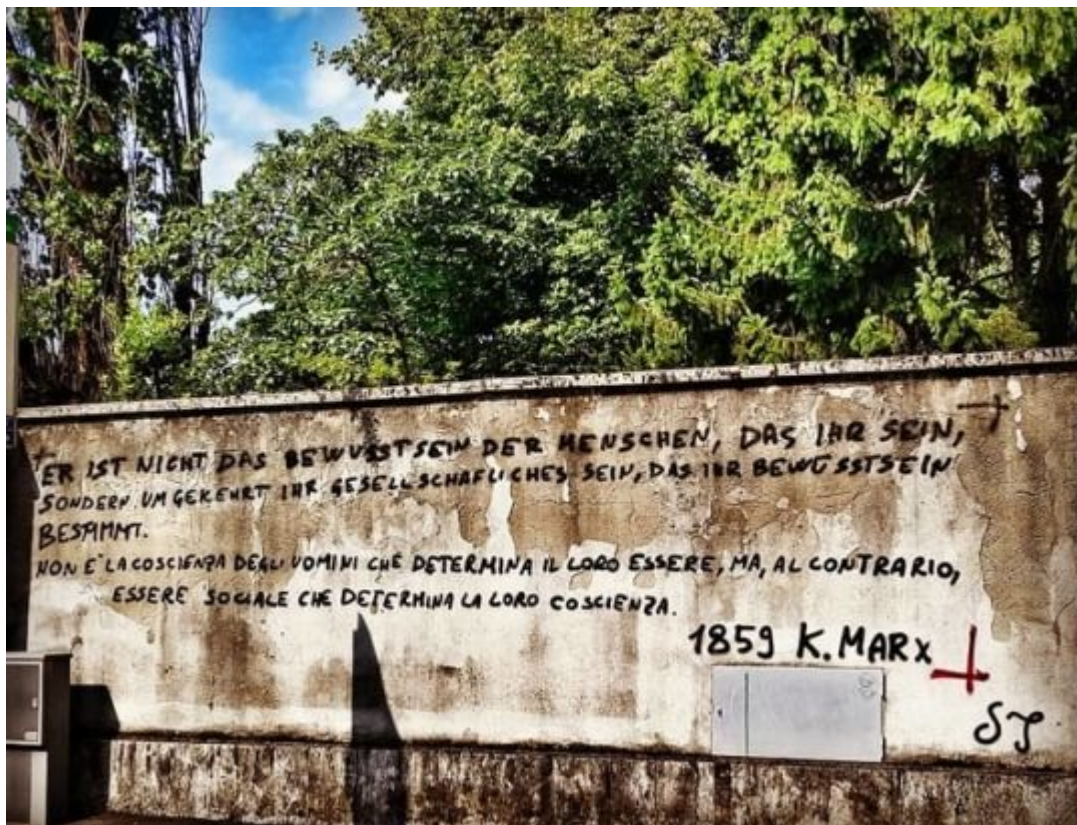 ER IST NICHT DAS BEWUSSTSEIN DER MENSCHEN, DAS IHR SEIN,
SONDERN UMGEKEHRT IHR GESELLSCHAFLICHES SEIN, DAS IHR BEWUSSTSEIN
BESTIMMT.
NON E' LA COSCIENZA DEGLI UOMINI CHE DETERMINA IL LORO ESSERE, MA, AL CONTRARIO,
ESSERE SOCIALE CHE DETERMINA LA LORO COSCIENZA.
1859 K. MARX